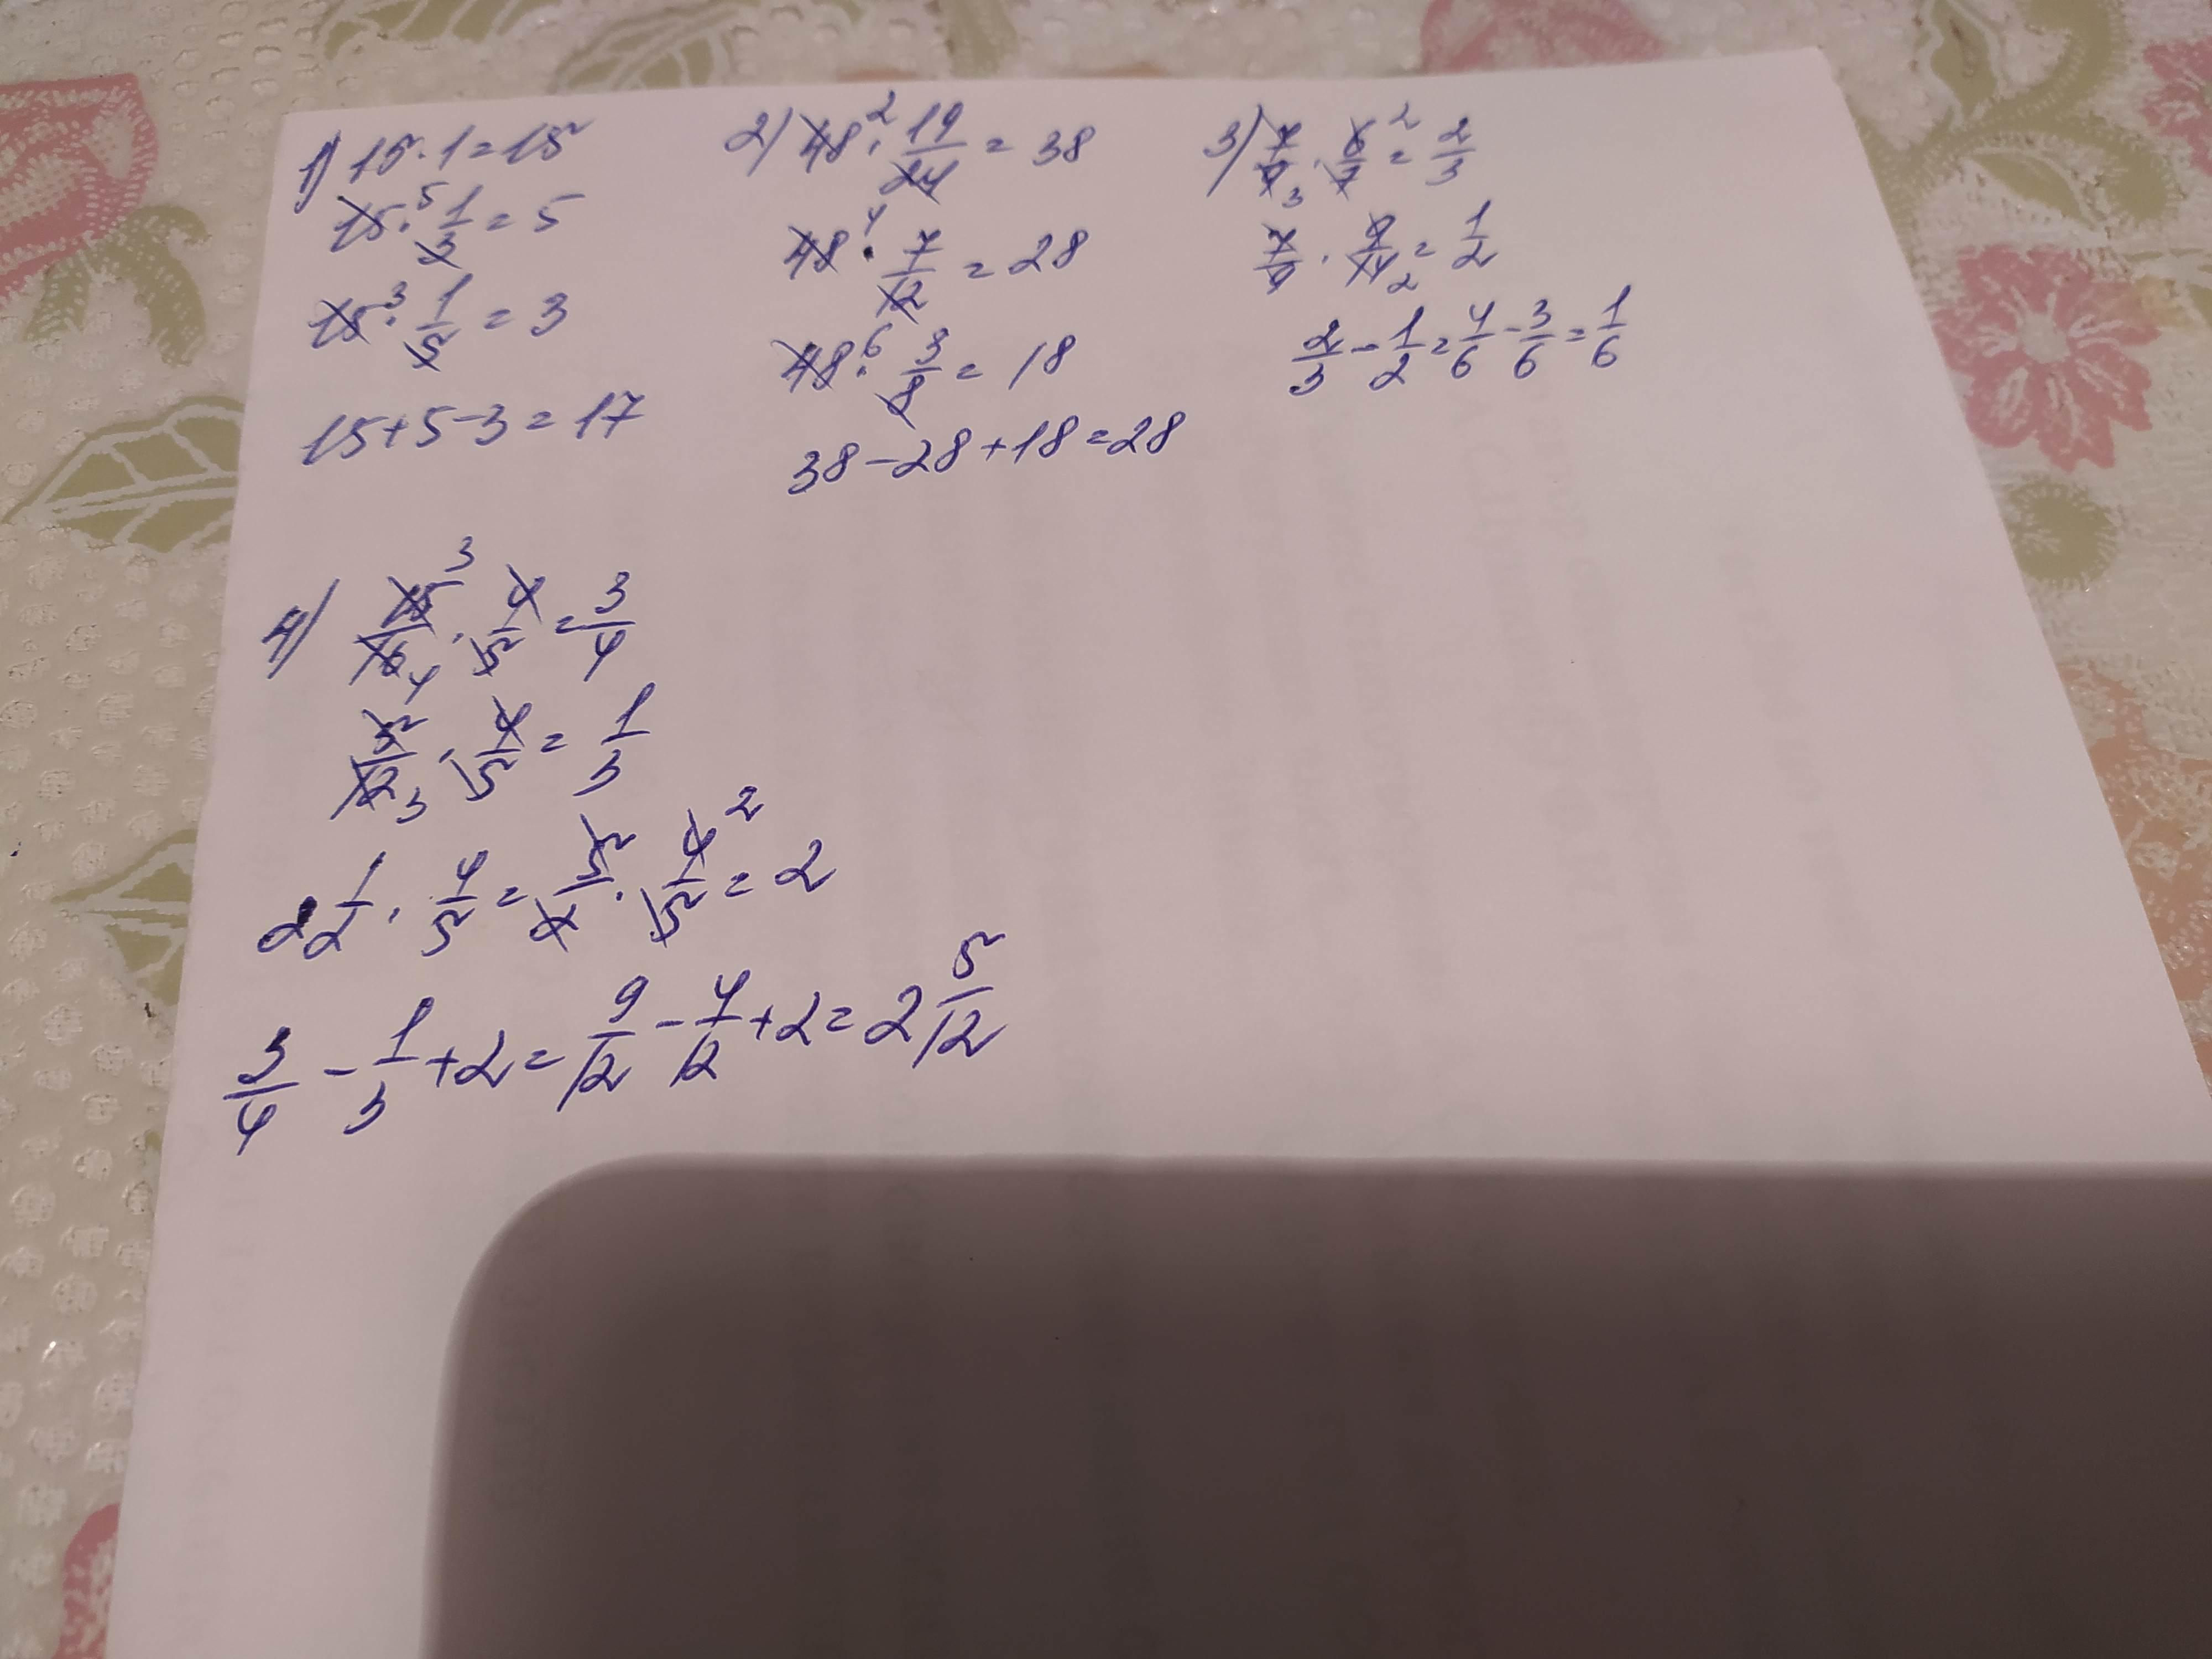 1) 15·1=15
15·5 1/3=5
15·3 1/5=3
15+5-3=17
2) 48·2 19/24=38
48·4 7/12=28
48·6 3/8=18
38-28+18=28
3) 7/9 3·6/7 2=2/3
7/9·9/14 2=1/2
2/3-1/2=4/6-3/6=1/6
4) 15/16 3 4·4/5=3/4
5/12 3·4/5=1/3
2 1/2·4/5=5/2·4/5 2=2
3/4-1/3+2=9/12-4/12+2=2 5/12